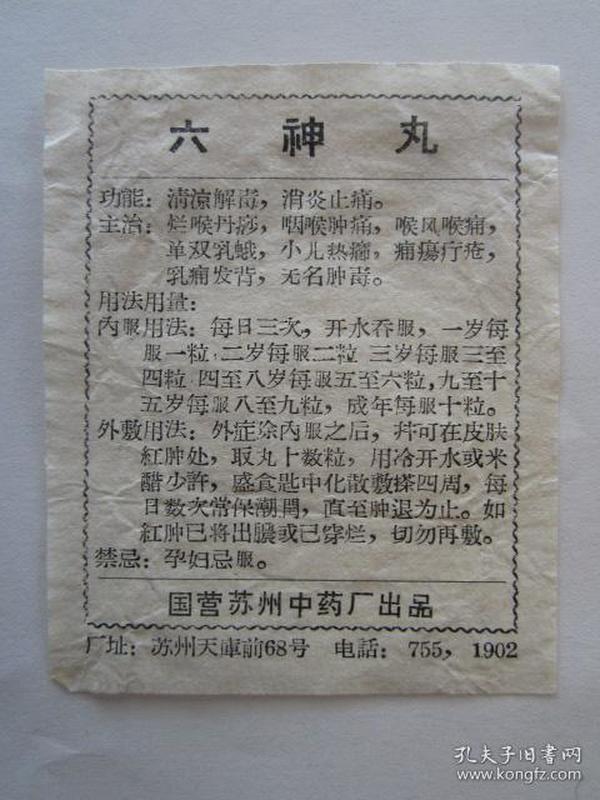 六神丸
功能：清涼解毒，消炎止痛。
主治：烂喉丹痧，咽喉肿痛，喉风喉痈，
单双乳蛾，小儿热癤，痈瘍疔疮，
乳痈发背，无名肿毒。
用法用量：
內服用法：每日三次，开水吞服，一岁每
服一粒，二岁每服二粒 三岁每服三至
四粒 四至八岁每服五至六粒，九至十
五岁每服八至九粒，成年每服十粒。
外敷用法：外症除內服之后，幷可在皮肤
紅肿处，取丸十数粒，用冷开水或米
醋少許，盛食匙中化散敷搽四周，每
日数次常保潮潤，直至肿退为止。如
紅肿已将出膿或已穿烂，切勿再敷。
禁忌：孕妇忌服。
国营苏州中药厂出品
厂址：苏州天庫前68号 电話：755，1902
孔夫子旧書网
www.kongfz.com